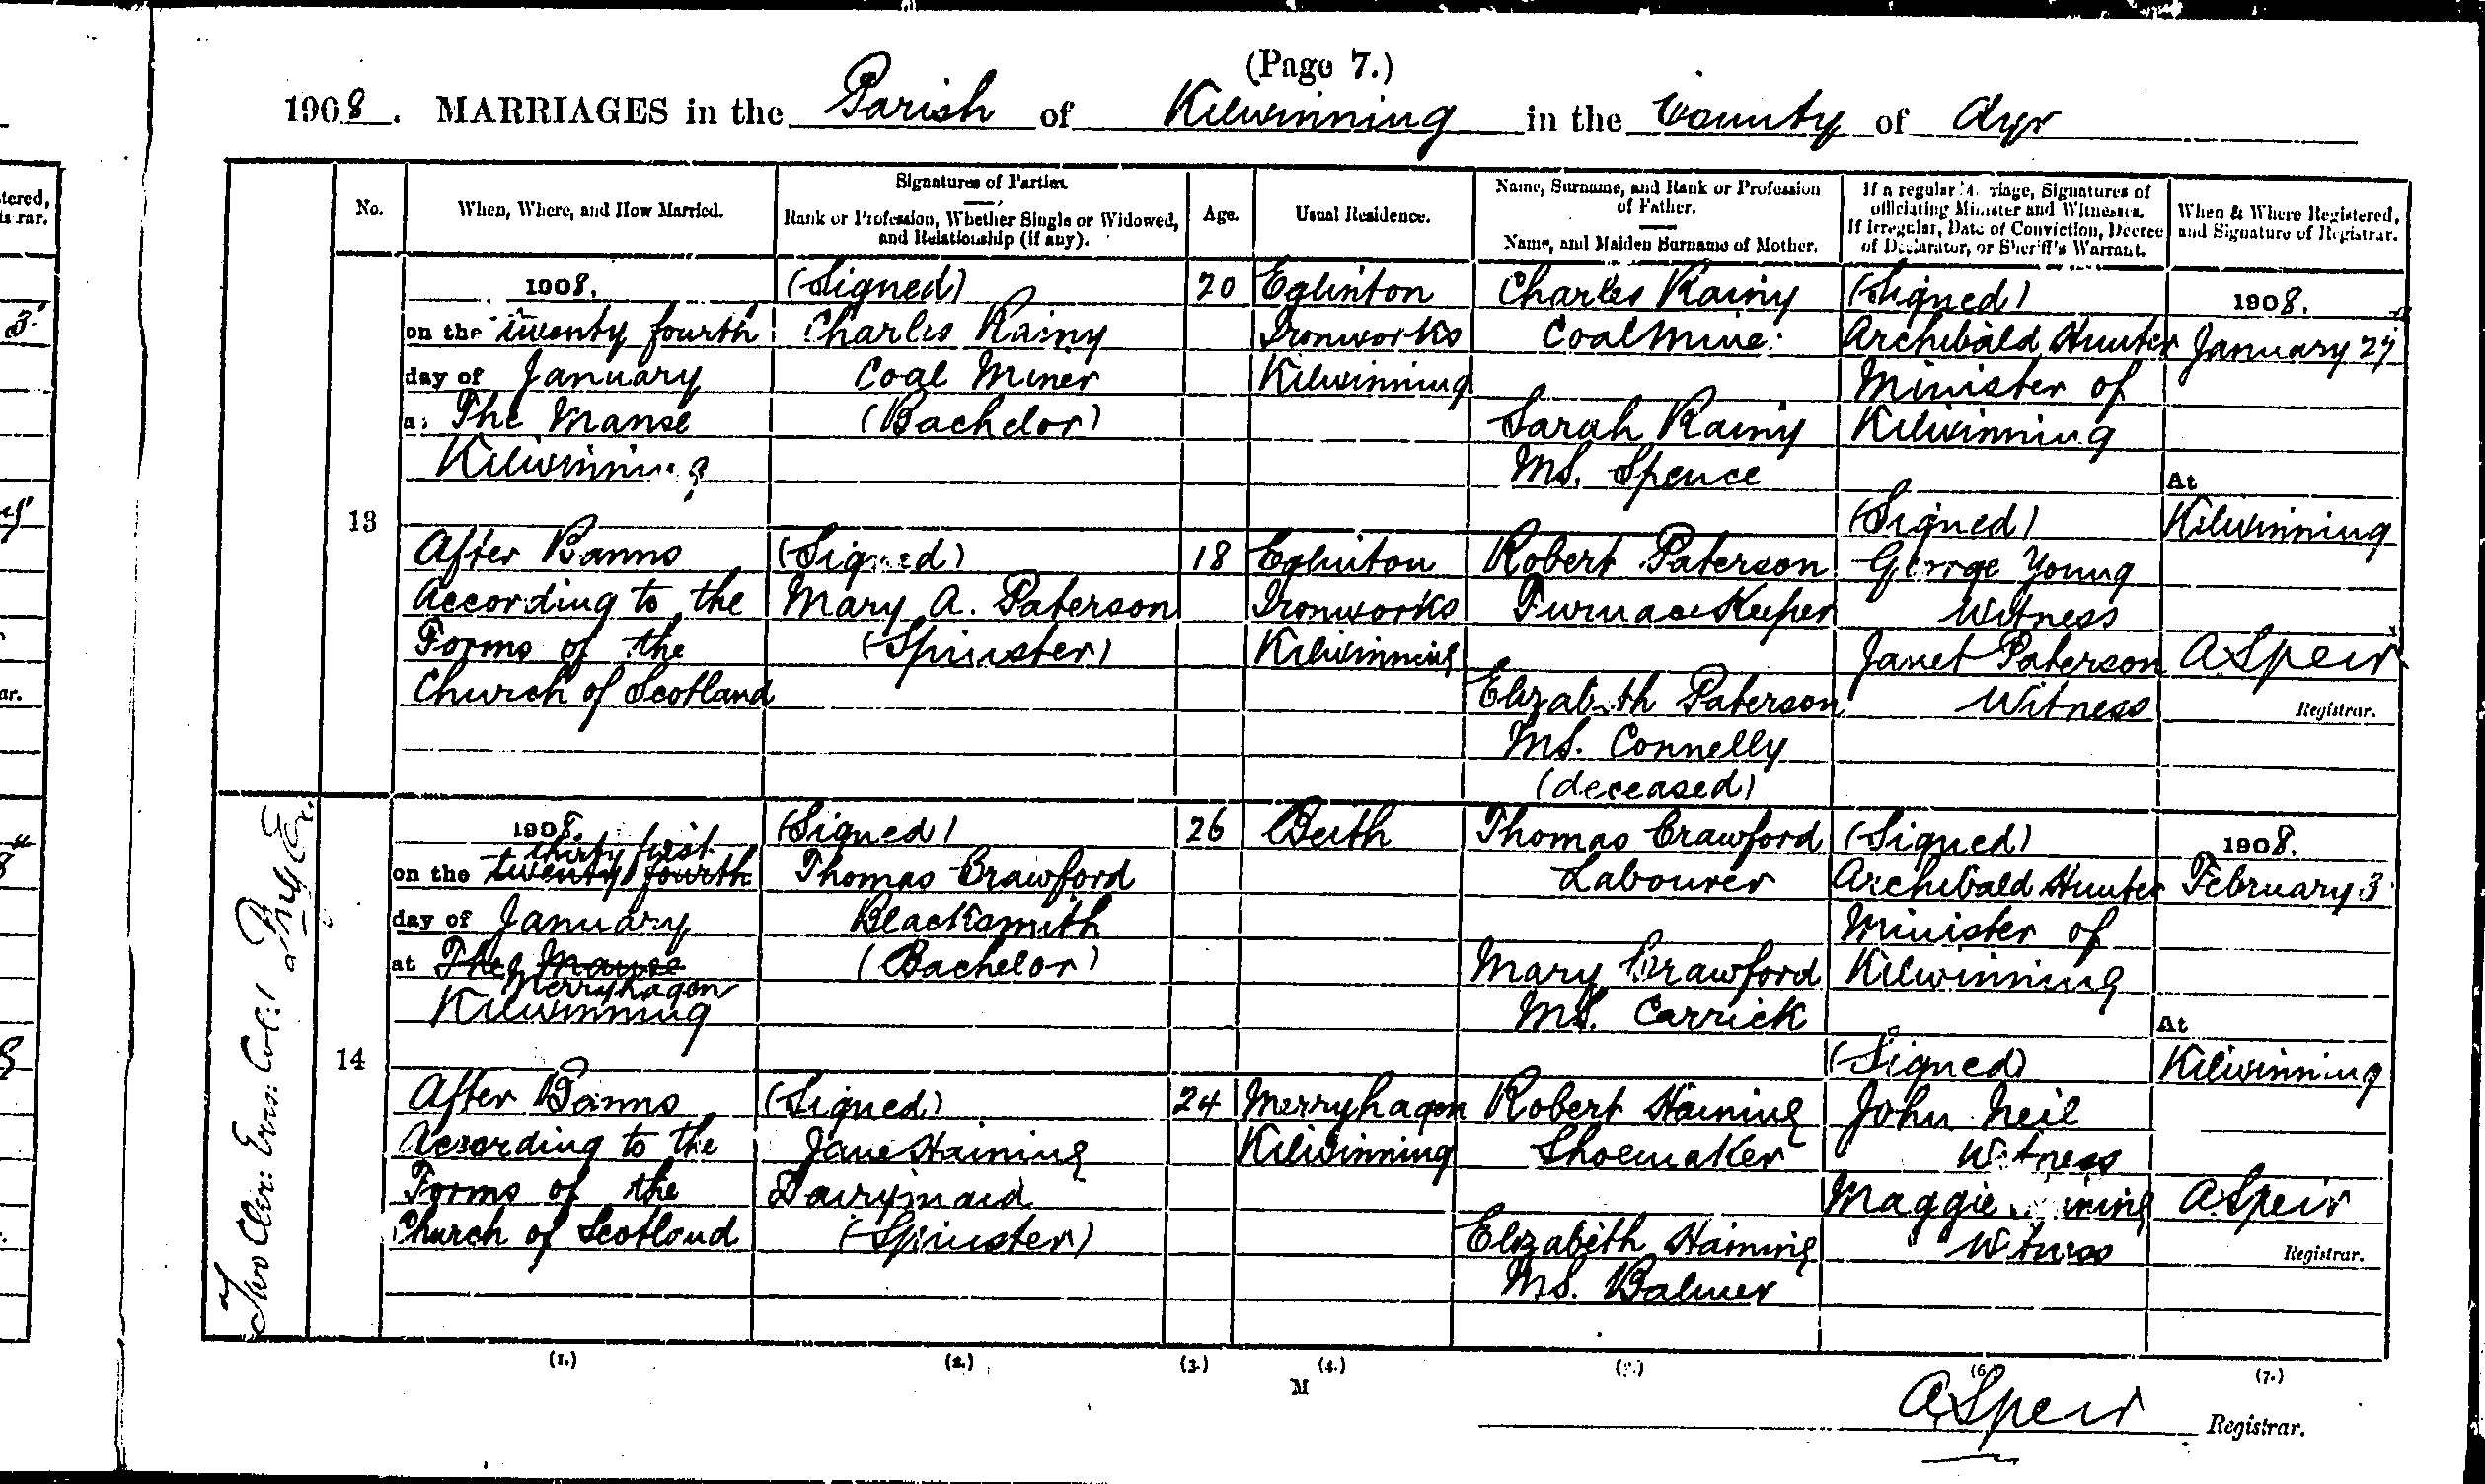 (Page 7.)
1908. MARRIAGES in the Parish of Kilwinning in the County of Ayr
No.
When, Where, and How Married.
Signatures of Parties.
Rank or Profession, Whether Single or Widowed,
and Relationship (if any).
Age.
Usual Residence.
Name, Surname, and Rank or Profession
of Father.
Name, and Maiden Surname of Mother.
If a regular Marriage, Signatures of
officiating Minister and Witnesses.
If Irregular, Date of Conviction, Decree
of Declarator, or Sheriff's Warrant.
When & Where Registered,
and Signature of Registrar.
13
1908.
on the twenty fourth
day of January
at The Manse
Kilwinning
After Banns
According to the
Forms of the
Church of Scotland
(Signed)
Charles Rainy
Coal Miner
(Bachelor)
(Signed)
Mary A. Paterson
(Spinster)
20
18
Eglinton
Ironworks
Kilwinning
Eglinton
Ironworks
Kilwinning
Charles Rainy
Coal Miner
Sarah Rainy
MS. Spence
Robert Paterson
Furnace Keeper
Elizabeth Paterson
MS. Connelly
(deceased)
(Signed)
Archibald Hunter
Minister of
Kilwinning
(Signed)
George Young
Witness
Janet Paterson
Witness
1908.
January 27
At
Kilwinning
A Speir
Registrar.
14
1908.
thirty first
on the twenty fourth
day of January
at The Manse
Merryhagen
Kilwinning
After Banns
According to the
Forms of the
Church of Scotland
(Signed)
Thomas Crawford
Blacksmith
(Bachelor)
(Signed)
Jane Haining
Dairymaid
(Spinster)
26
24
Beith
Merryhagen
Kilwinning
Thomas Crawford
Labourer
Mary Crawford
MS. Carrick
Robert Haining
Shoemaker
Elizabeth Haining
MS. Balmer
(Signed)
Archibald Hunter
Minister of
Kilwinning
(Signed)
John Neil
Witness
Maggie Haining
Witness
1908.
February 3
At
Kilwinning
A Speir
Registrar.
Two Cler: Errs: Cor:
(1.)
(2.)
(3.)
(4.)
(6
(7.)
M
A Speir Registrar.